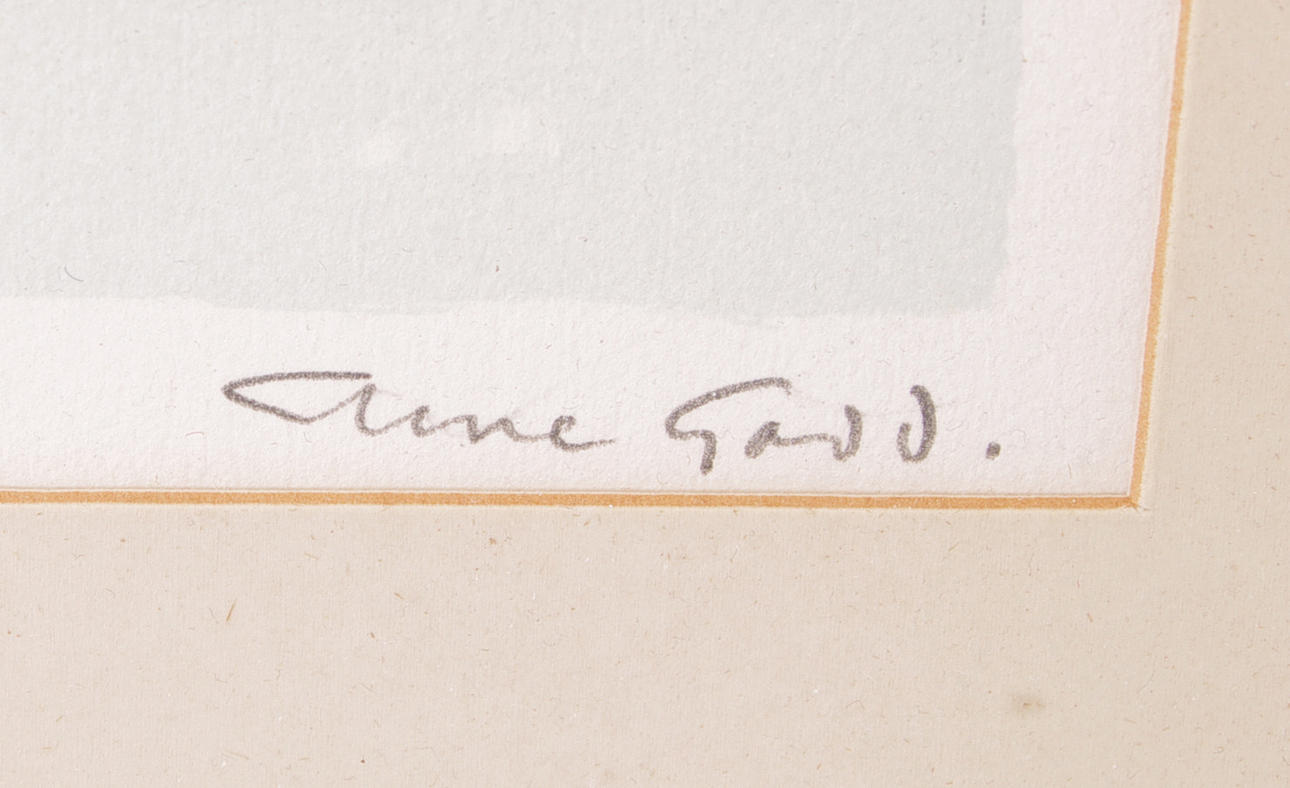 Anne Gadd.